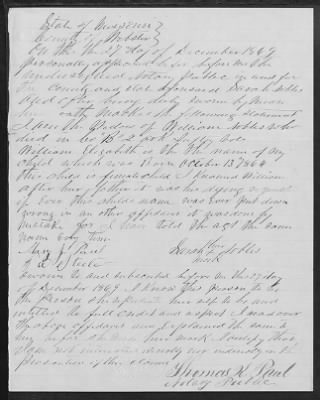 State of Missouri }
County of Webster }
On this the 27 day of December 1869
personally appeared before me the
undersigned Notary Public in and for
the County and State aforesaid Sarah Nobles
who after being duly sworn by me on
her oath makes the following statement
I am the Widow of William Nobles who
died in
William Elizabeth is the name of my
child which was Born October 13 1864
this child is female child I named William
after her father it was his dying request
if Ever this childs name was Ever put down
wrong in an other affidavit it was done by
mistake for I have told the the same
name Every time
Mary J Paul
Sarah her X mark Nobles
Sworn to and subscribed before me this 27 day
of December 1869 I know this person to be
the person She represents her self to be and
entitled the full credit and respect I read over
the above affidavit and Explained the same to
her before She made her mark I
am not concerned directly nor indirectly in the
prosecution of this claim
Thomas K Paul
Notary Public